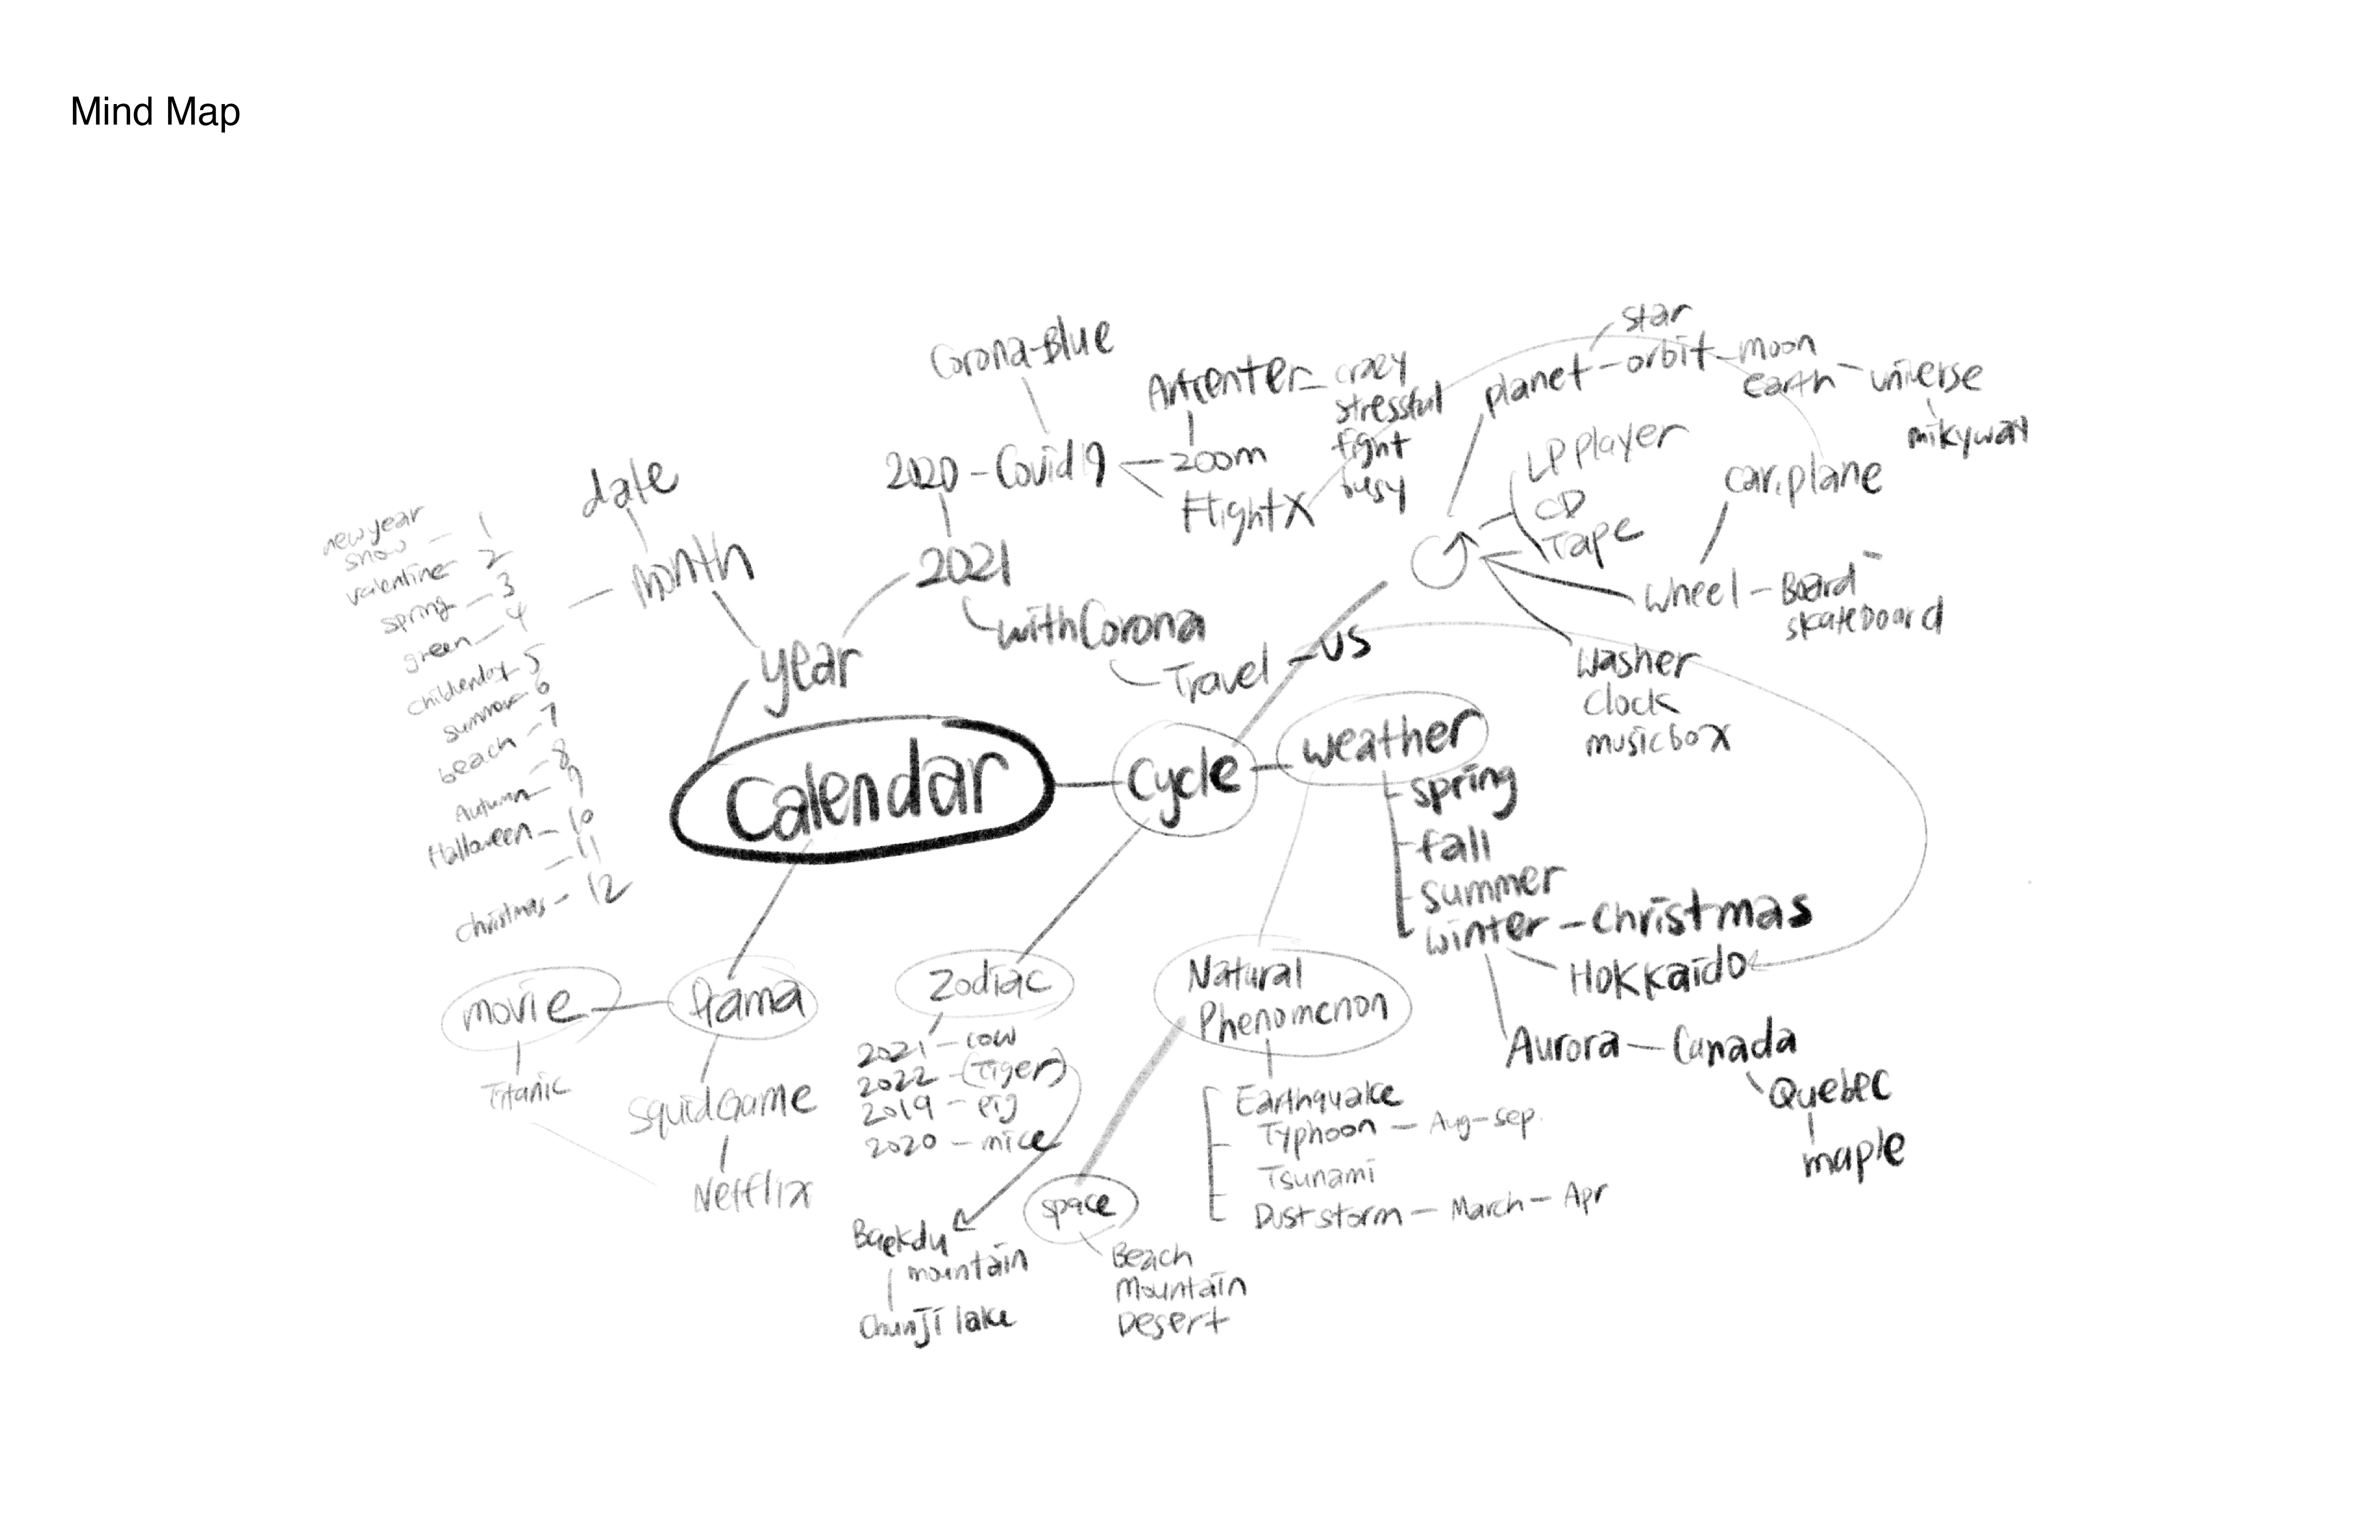 Mind Map
Corona-Blue
Artcenter
crazy
stressful
fight
busy
star
planet - orbit - moon
earth - universe
mikyway
2020 - Covid19 - zoom
Flight X
LP player
CD
Tape
car.plane
date
month
2021
withCorona
Travel - US
year
wheel - Board
skateboard
washer
clock
musicbox
newyear
snow - 1
valentine - 2
spring - 3
green - 4
childrenday - 5
summer - 6
beach - 7
- 8
Autumn - 9
Halloween - 10
- 11
christmas - 12
Calendar
Cycle - weather
spring
fall
summer
winter - Christmas
Hokkaido
Aurora - Canada
Quebec
maple
movie
Titanic
SquidGame
Netflix
Zodiac
2021 - cow
2022 - (Tiger)
2019 - pig
2020 - mice
Baekdu
mountain
Chunji lake
Natural
Phenomenon
Earthquake
Typhoon - Aug-sep.
Tsunami
Dust storm - March - Apr
space
Beach
Mountain
Desert